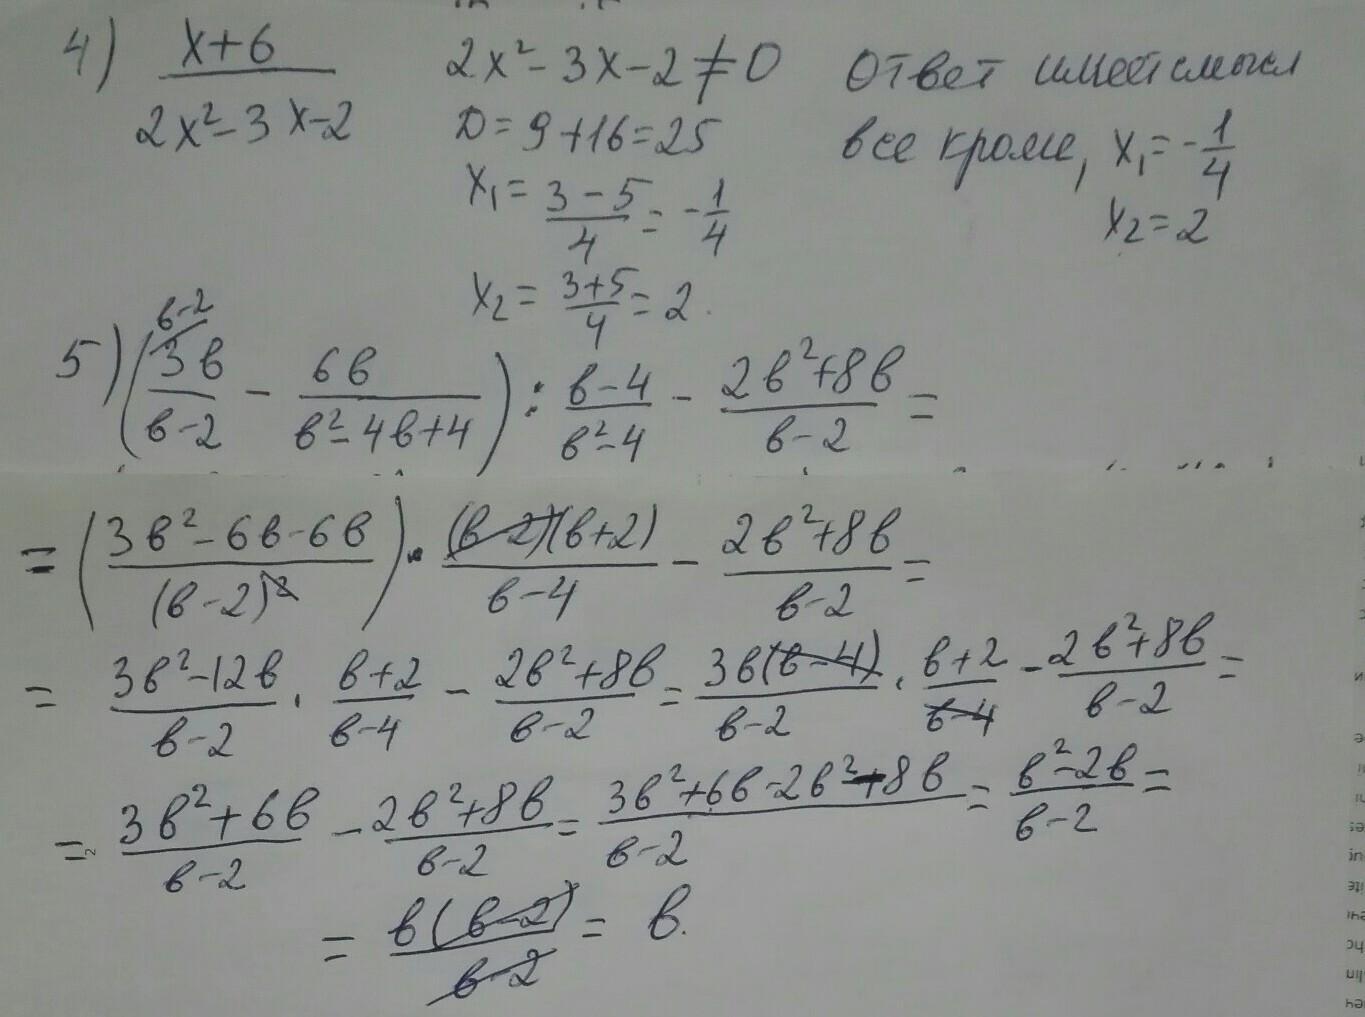 4) (x+6)/(2x²-3x-2) 2x²-3x-2≠0 Ответ имеет смысл
D=9+16=25 все кроме, x₁=-1/4
x₁=(3-5)/4=-1/4 x₂=2
x₂=(3+5)/4=2.
в-2
5) (3в/(в-2) - 6в/(в²-4в+4)) : (в-4)/(в²-4) - (2в²+8в)/(в-2) =
= ((3в²-6в-6в)/(в-2)²) · ((в-2)(в+2))/(в-4) - (2в²+8в)/(в-2) =
= (3в²-12в)/(в-2) · (в+2)/(в-4) - (2в²+8в)/(в-2) = (3в(в-4))/(в-2) · (в+2)/(в-4) - (2в²+8в)/(в-2) =
= (3в²+6в)/(в-2) - (2в²+8в)/(в-2) = (3в²+6в-2в²-8в)/(в-2) = (в²-2в)/(в-2) =
= (в(в-2))/(в-2) = в.